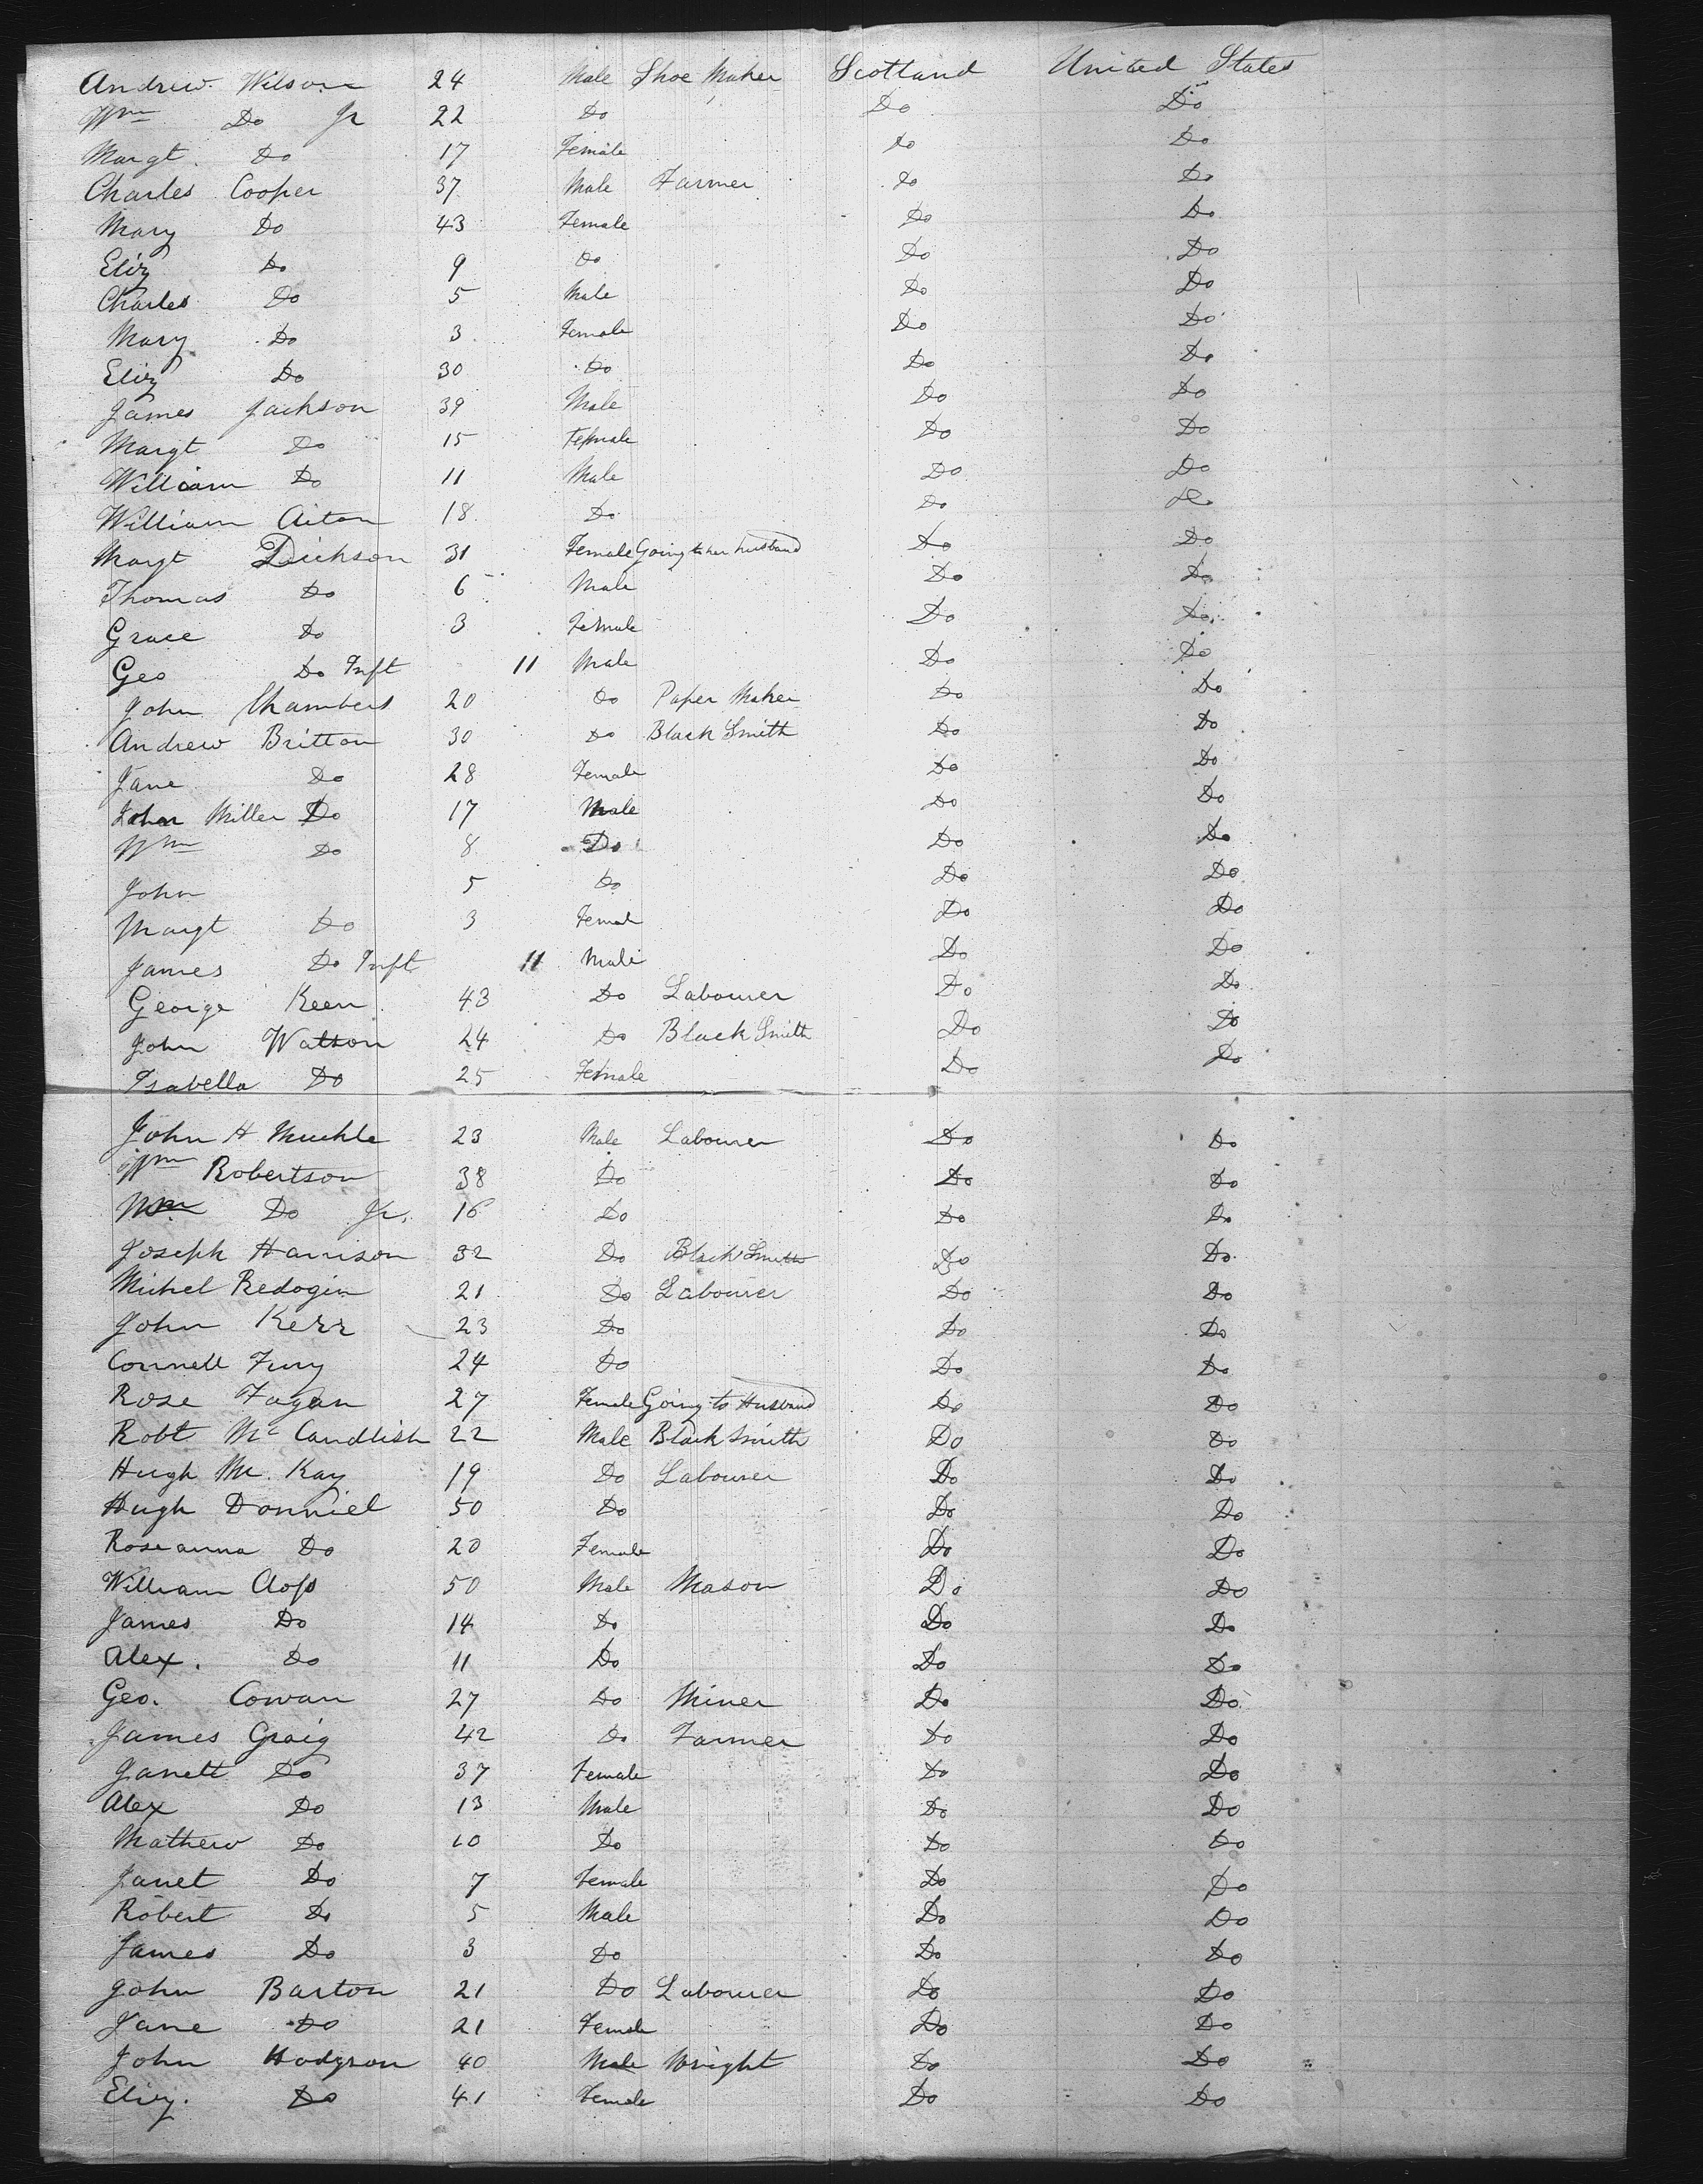 Andrew Wilson 24 Male Shoe Maker Scotland United States
Wm Do Jr 22 Do Do Do
Margt. Do 17 Female Do Do
Charles Cooper 37 Male Farmer Do Do
Mary Do 43 Female Do Do
Eliz Do 9 Do Do Do
Charles Do 5 Male Do Do
Mary Do 3 Female Do Do
Eliz Do 30 Do Do Do
James Jackson 39 Male Do Do
Margt Do 15 Female Do Do
William Do 11 Male Do Do
William Aiton 18 Do Do Do
Margt Dickson 31 Female Going to her husband Do Do
Thomas Do 6 Male Do Do
Grace Do 3 Female Do Do
Geo Do Inft 11 Male Do Do
John Chambers 20 Do Paper Maker Do Do
Andrew Britton 30 Do Black Smith Do Do
Jane Do 28 Female Do Do
John Miller Do 17 Male Do Do
Wm Do 8 Do Do Do
John 5 Do Do Do
Margt Do 3 Female Do Do
James Do Inft 11 Male Do Do
George Keen 43 Do Labourer Do Do
John Watson 24 Do Black Smith Do Do
Isabella Do 25 Female Do Do
John H Muckle 23 Male Labourer Do Do
Wm Robertson 38 Do Do Do
Wm Do Jr. 16 Do Do Do
Joseph Harrison 32 Do Black Smith Do Do
Michel Redogin 21 Do Labourer Do Do
John Kerr 23 Do Do Do
Connell Fury 24 Do Do Do
Rose Fagan 27 Female Going to Husband Do Do
Robt Mc Candlish 22 Male Black Smith Do Do
Hugh Mc. Kay 19 Do Labourer Do Do
Hugh Donniel 50 Do Do Do
Roseanna Do 20 Female Do Do
William 50 Male Mason Do Do
James Do 14 Do Do Do
Alex. Do 11 Do Do Do
Geo. Cowan 27 Do Miner Do Do
James Graig 42 Do Farmer Do Do
Janett Do 37 Female Do Do
Alex Do 13 Male Do Do
Mathew Do 10 Do Do Do
Janet Do 7 Female Do Do
Robert Do 5 Male Do Do
James Do 3 Do Do Do
John Barton 21 Do Labourer Do Do
Jane Do 21 Female Do Do
John Hodgson 40 Male Wright Do Do
Elizy. Do 41 Female Do Do